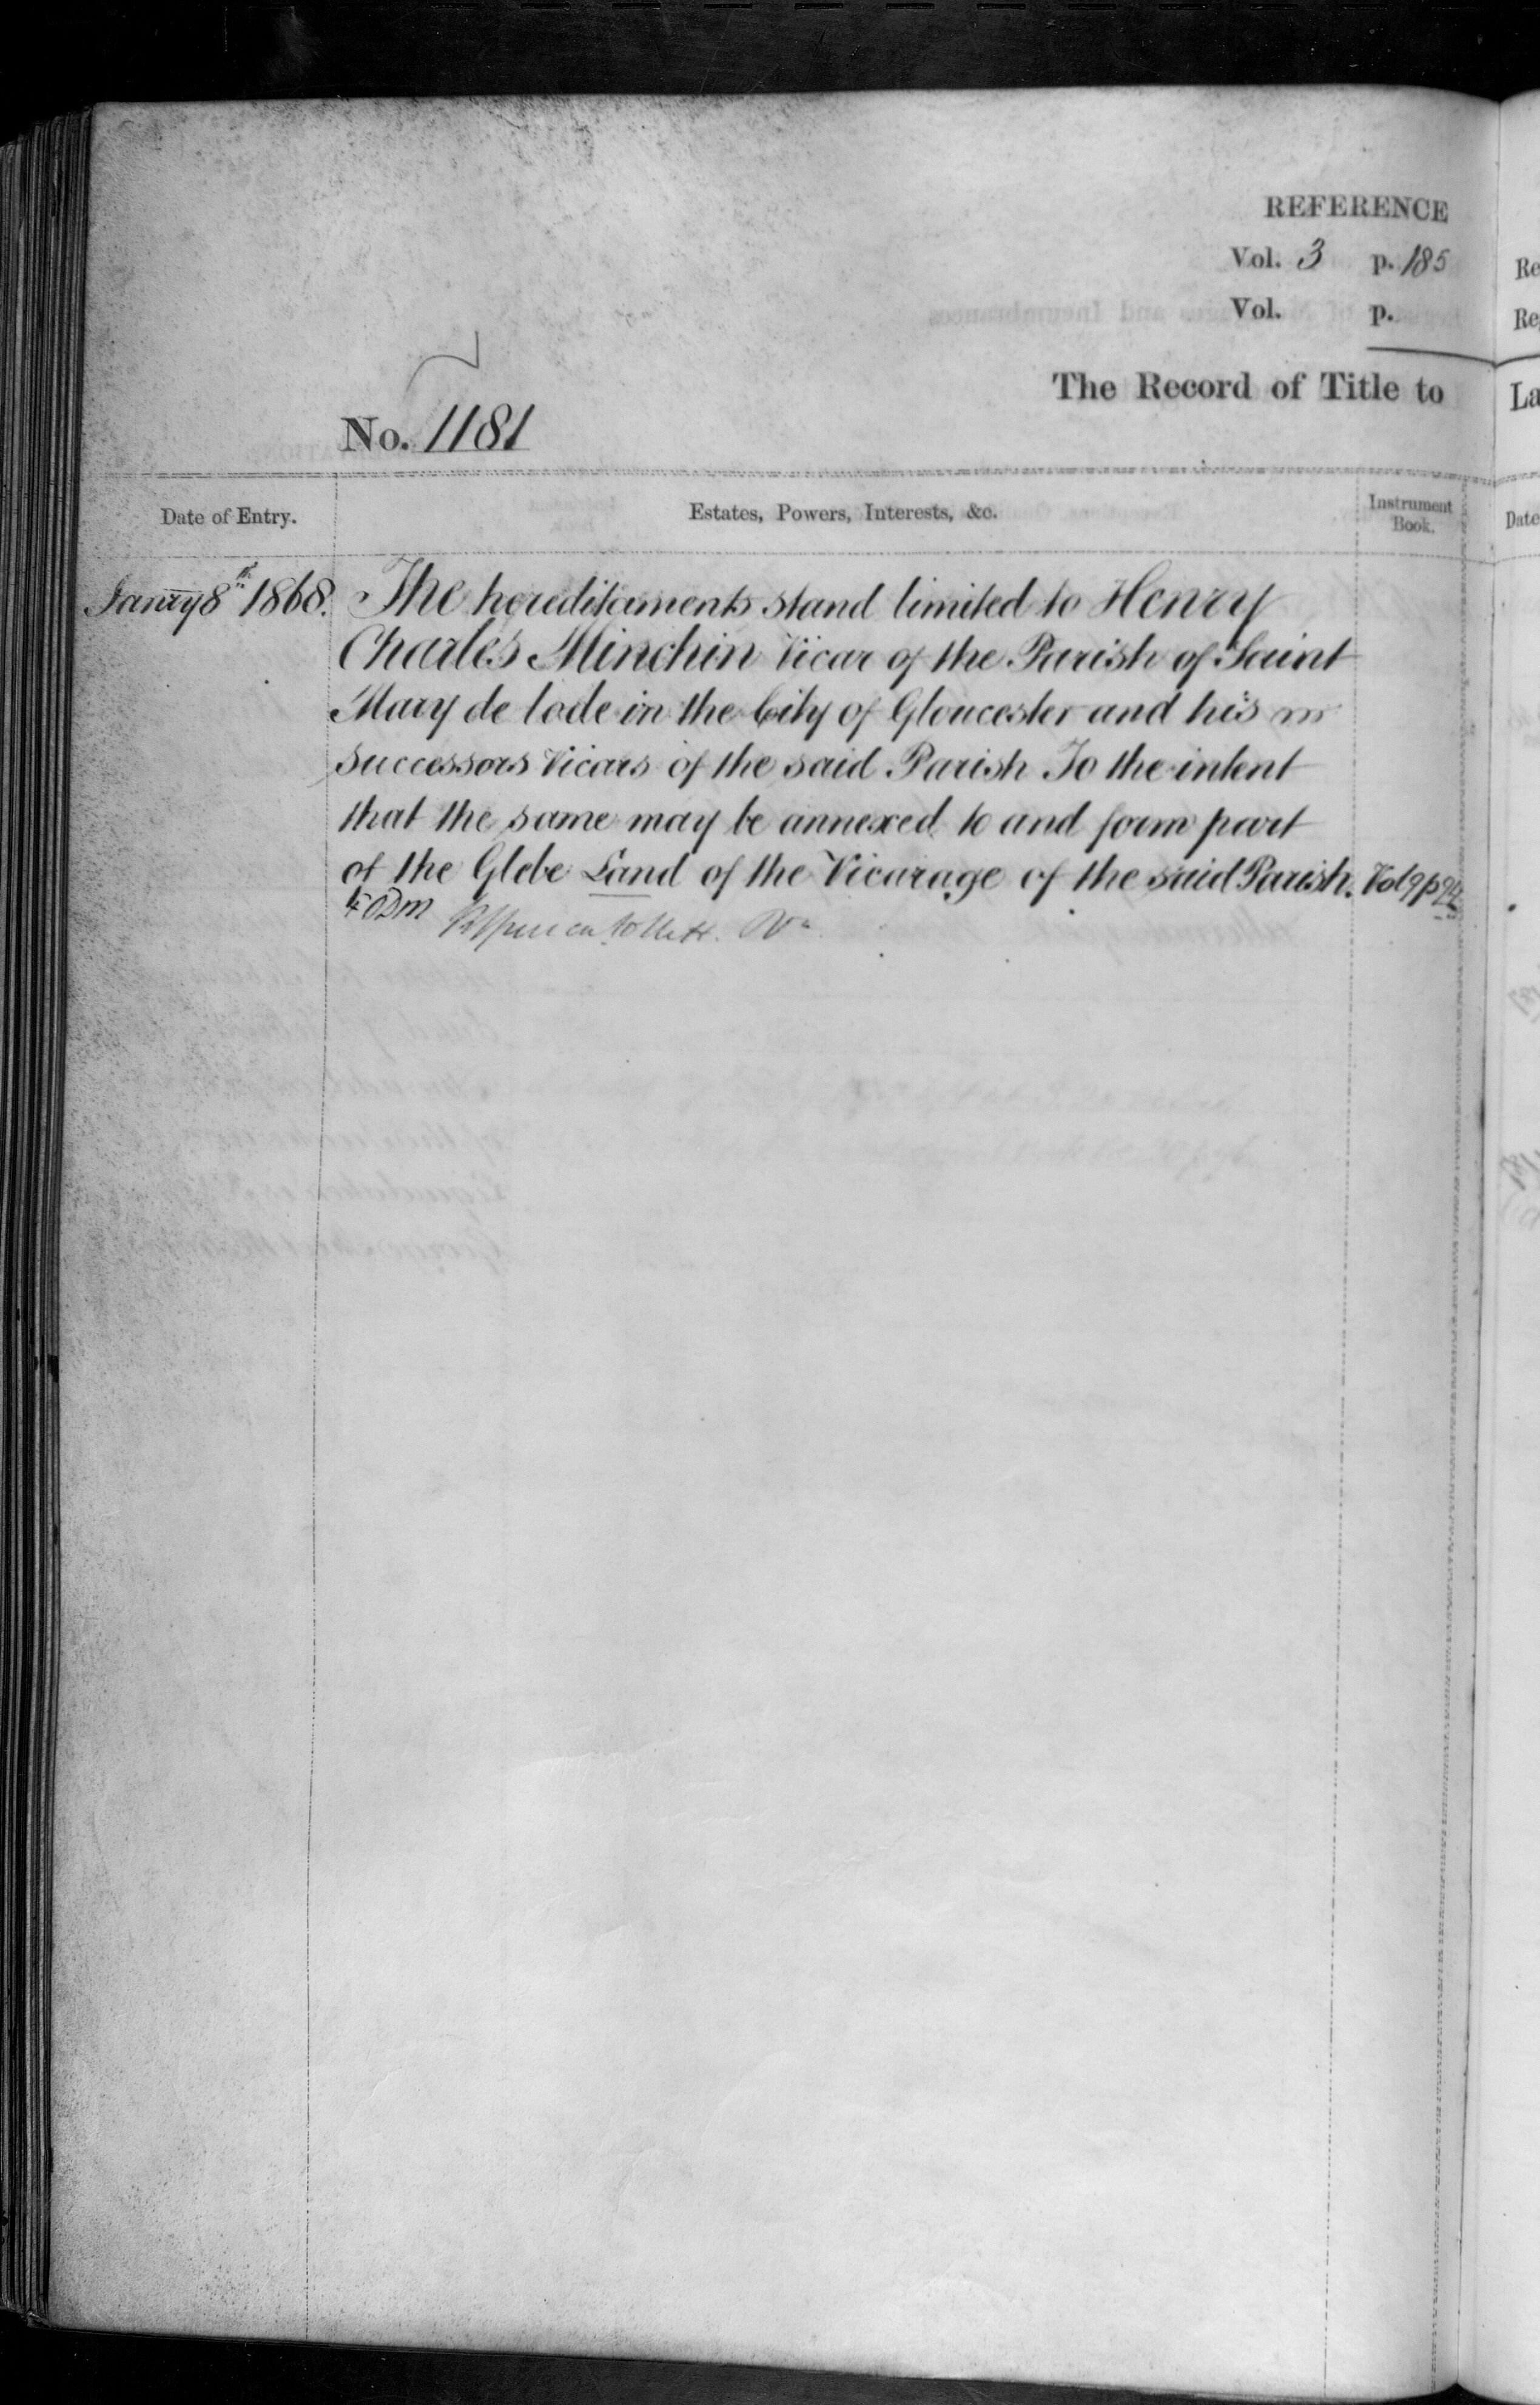 REFERENCE
Vol. 3 p. 185
Vol. p.
The Record of Title to
No. 1181
Date of Entry.
Estates, Powers, Interests, &c.
Instrument
Book.
Janry 8th 1868.
The hereditaments stand limited to Henry
Charles Minchin Vicar of the Parish of Saint
Mary de lode in the City of Gloucester and his
successors Vicars of the said Parish To the intent
that the same may be annexed to and form part
of the Glebe Land of the Vicarage of the said Parish. Vol 9 p 94
Re
Re
La
Date